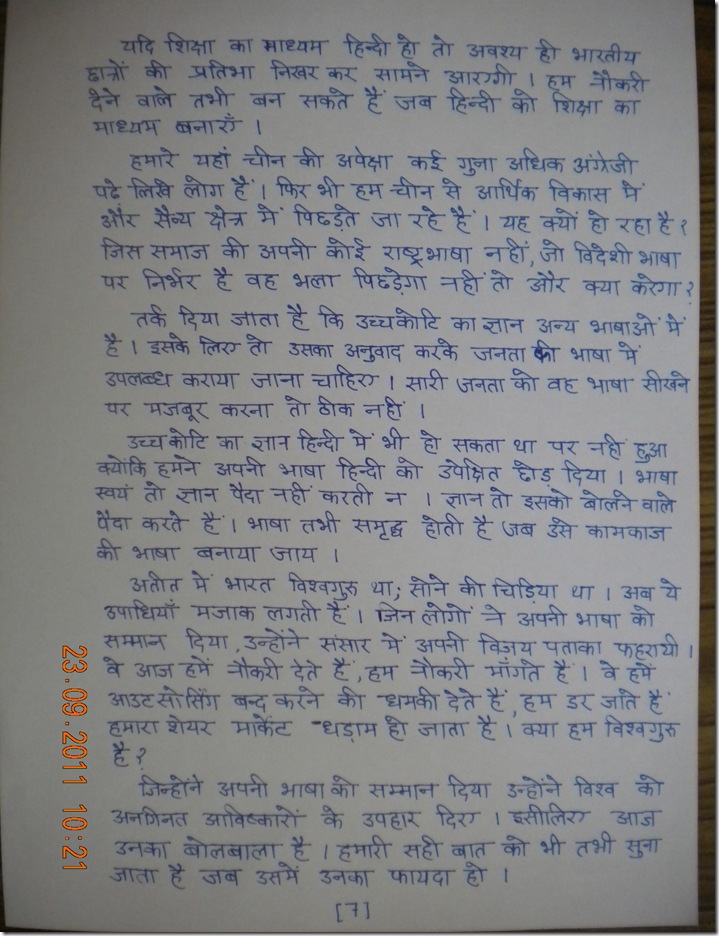 यदि शिक्षा का माध्यम हिन्दी हो तो अवश्य ही भारतीय
छात्रों की प्रतिभा निखर कर सामने आएगी । हम नौकरी
देने वाले तभी बन सकते हैं जब हिन्दी को शिक्षा का
माध्यम बनाएँ ।
हमारे यहां चीन की अपेक्षा कई गुना अधिक अंग्रेजी
पढे लिखे लोग हैं । फिर भी हम चीन से आर्थिक विकास में
और सैन्य क्षेत्र में पिछड़ते जा रहे हैं । यह क्यों हो रहा है ?
जिस समाज की अपनी कोई राष्ट्रभाषा नहीं, जो विदेशी भाषा
पर निर्भर है वह भला पिछड़ेगा नहीं तो और क्या करेगा ?
तर्क दिया जाता है कि उच्चकोटि का ज्ञान अन्य भाषाओं में
है । इसके लिए तो उसका अनुवाद करके जनता की भाषा में
उपलब्ध कराया जाना चाहिए । सारी जनता को वह भाषा सीखने
पर मजबूर करना तो ठीक नहीं ।
उच्चकोटि का ज्ञान हिन्दी में भी हो सकता था पर नहीं हुआ
क्योंकि हमने अपनी भाषा हिन्दी को उपेक्षित छोड़ दिया । भाषा
स्वयं तो ज्ञान पैदा नहीं करती न । ज्ञान तो इसको बोलने वाले
पैदा करते हैं । भाषा तभी समृद्ध होती है जब उसे कामकाज
की भाषा बनाया जाय ।
अतीत में भारत विश्वगुरु था; सोने की चिड़िया था । अब ये
उपाधियाँ मजाक लगती हैं । जिन लोगों ने अपनी भाषा को
सम्मान दिया, उन्होंने संसार में अपनी विजय पताका फहरायी ।
वे आज हमें नौकरी देते हैं, हम नौकरी माँगते हैं । वे हमें
आउटसोर्सिंग बन्द करने की धमकी देते हैं, हम डर जाते हैं
हमारा शेयर मार्केट धड़ाम हो जाता है । क्या हम विश्वगुरु
हैं ?
जिन्होंने अपनी भाषा को सम्मान दिया उन्होंने विश्व को
अनगिनत आविष्कारों के उपहार दिए । इसीलिए आज
उनका बोलबाला है । हमारी सही बात को भी तभी सुना
जाता है जब उसमें उनका फायदा हो ।
[7]
23.09.2011 10:21